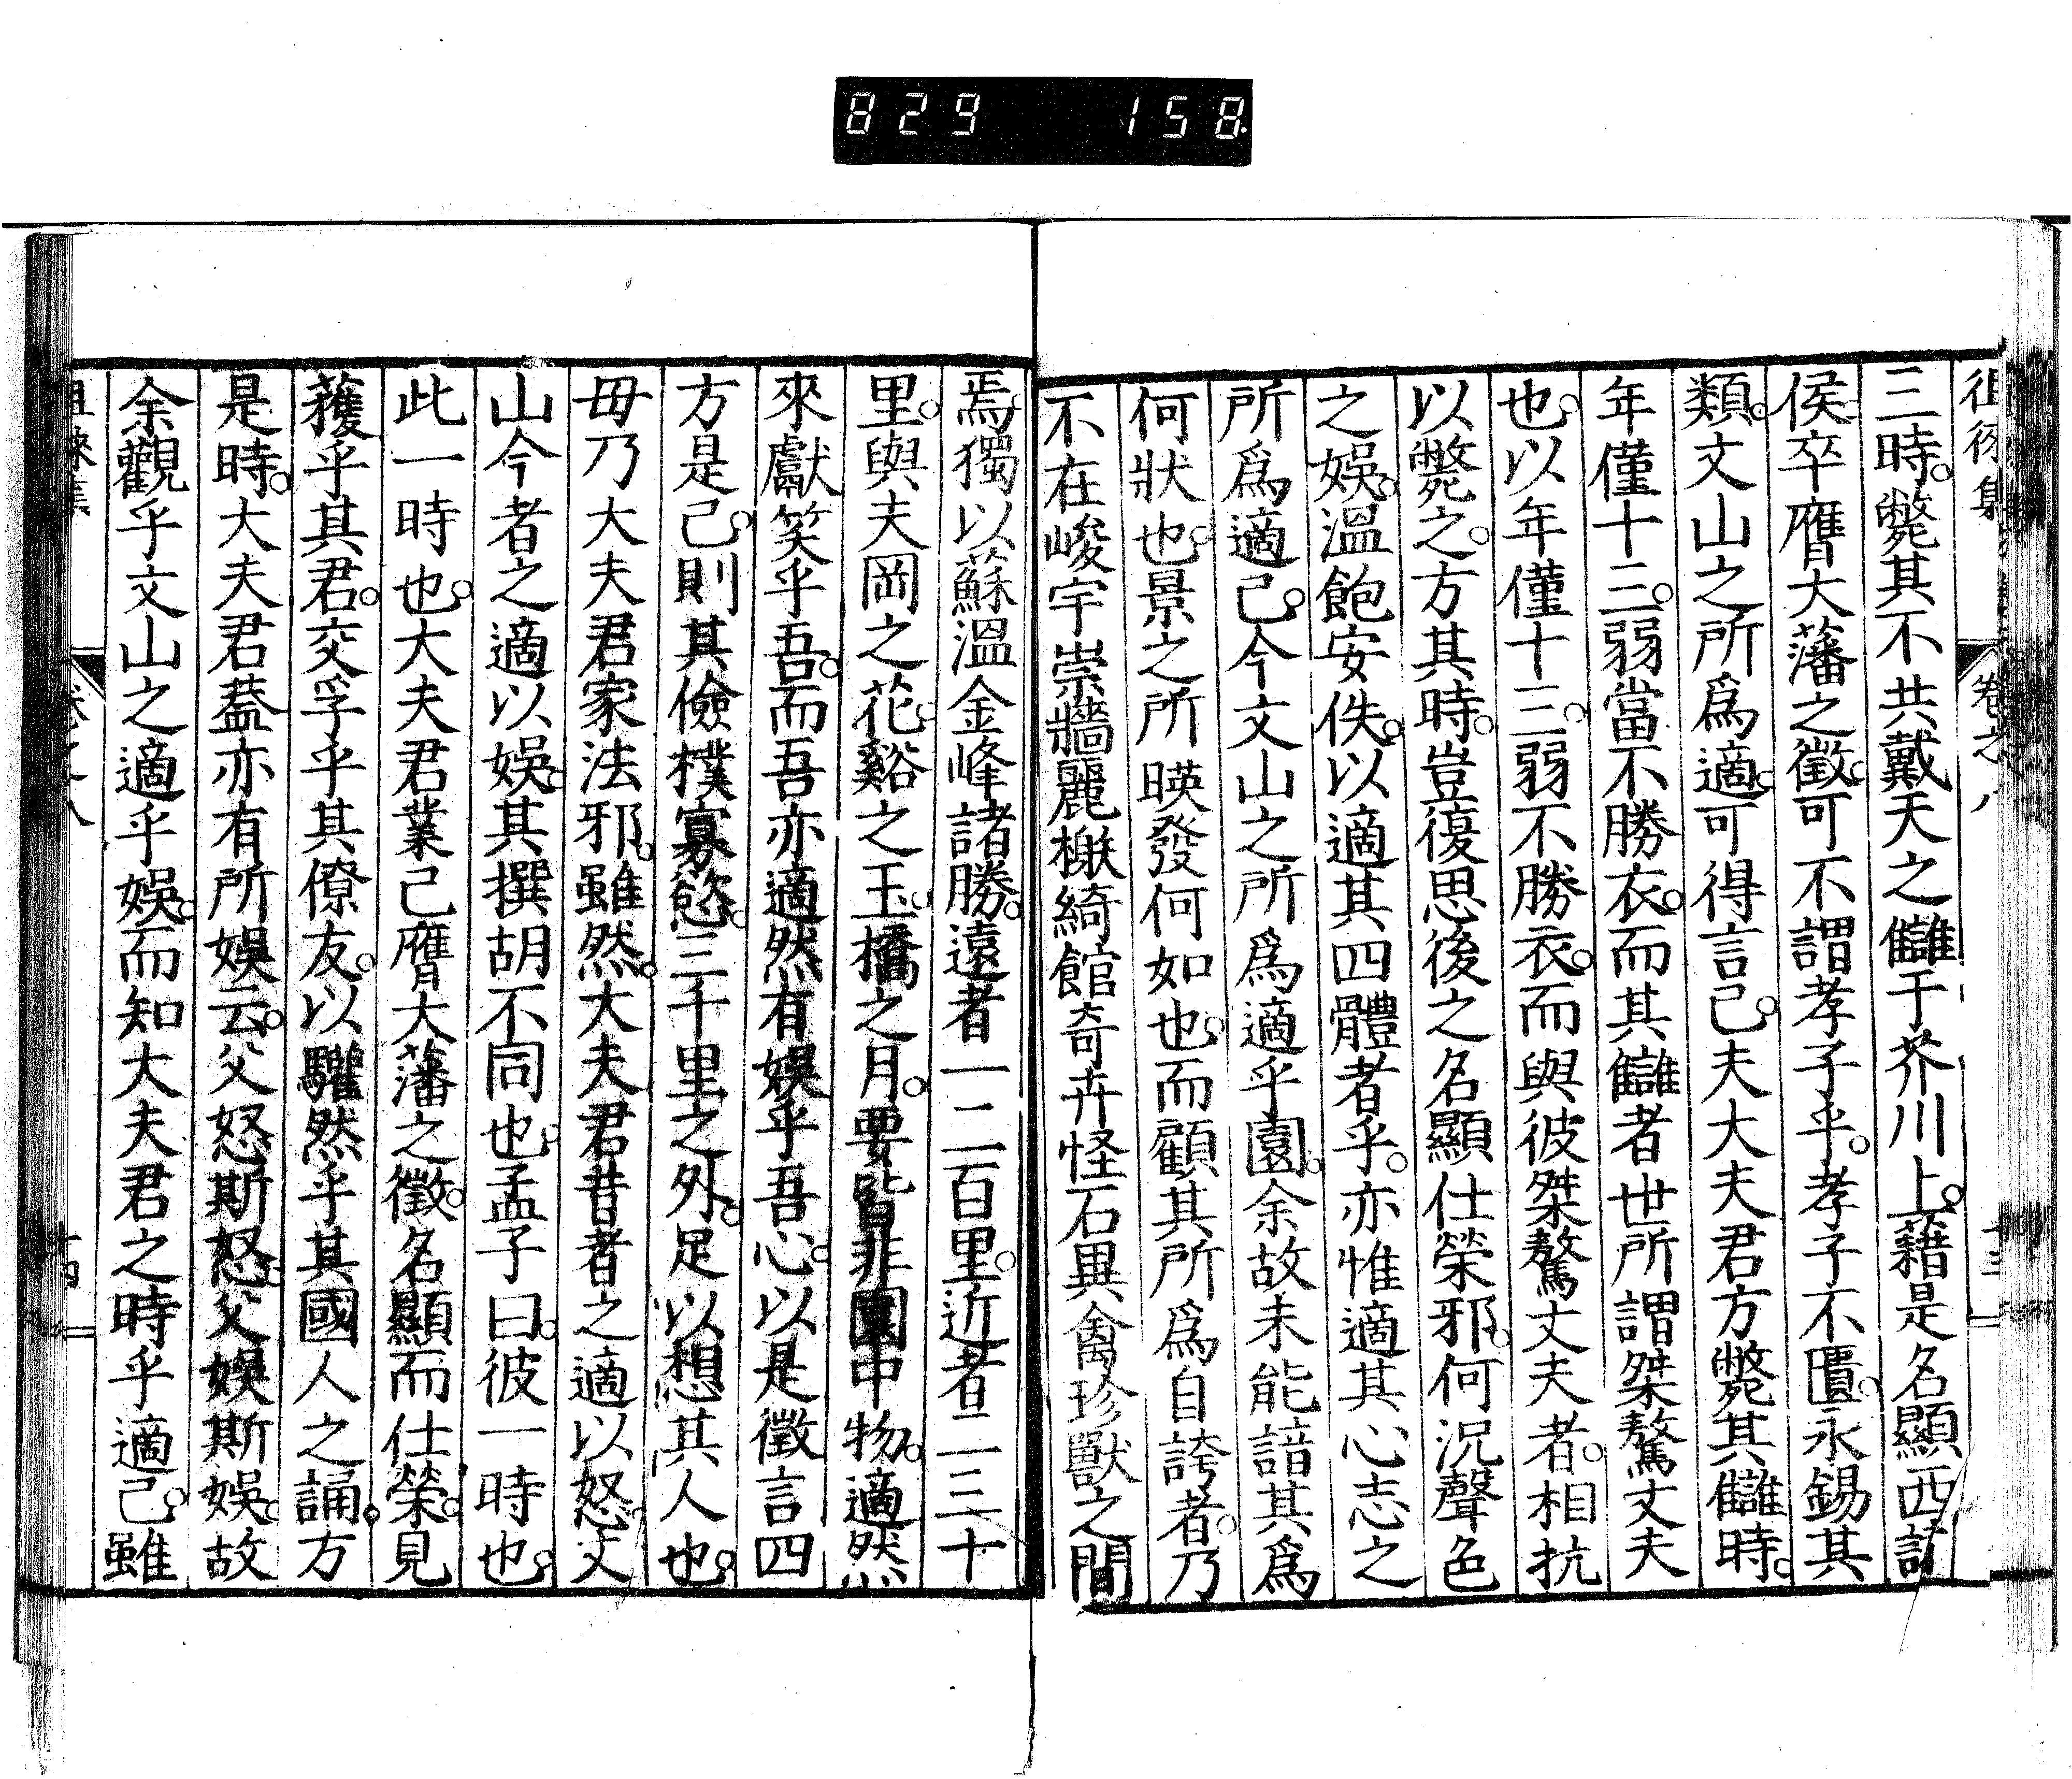 829 158
徂徠集 卷之八 十三
三時。斃其不共戴天之讎于芥川上。藉是名顯西諸
侯卒膺大藩之徵。可不謂孝子乎。孝子不匱。永錫其
類。文山之所爲適。可得言已。夫大夫君方斃其讎時。
年僅十三。弱當不勝衣。而其讎者世所謂桀驁丈夫
也。以年僅十三。弱不勝衣。而與彼桀驁丈夫者。相抗
以斃之。方其時。豈復思後之名顯仕榮邪。何況聲色
之娛。溫飽安佚。以適其四體者乎。亦惟適其心志之
所爲適已。今文山之所爲適乎園。余故未能諳其爲
何狀也。景之所暎發何如也。而顧其所爲自誇者。乃
不在峻宇崇牆麗榭綺館奇卉怪石異禽珍獸之間
焉。獨以蘇溫金峰諸勝。遠者一二百里。近者二三十
里。與夫岡之花。谿之玉。橋之月。要皆非園中物。適然
來獻笑乎吾。而吾亦適然有娛乎吾心。以是徵言四
方是已。則其儉樸寡慾。三千里之外。足以想其人也。
毋乃大夫君家法邪。雖然。大夫君昔者之適以怒。文
山今者之適以娛。其撰胡不同也。孟子曰。彼一時也。
此一時也。大夫君業已膺大藩之徵。名顯而仕榮。見
獲乎其君。交孚乎其僚友。以驩然乎其國人之誦。方
是時。大夫君蓋亦有所娛云。父怒斯怒。父娛斯娛。故
余觀乎文山之適乎娛。而知大夫君之時乎適已。雖
徂徠集 卷之八 十四